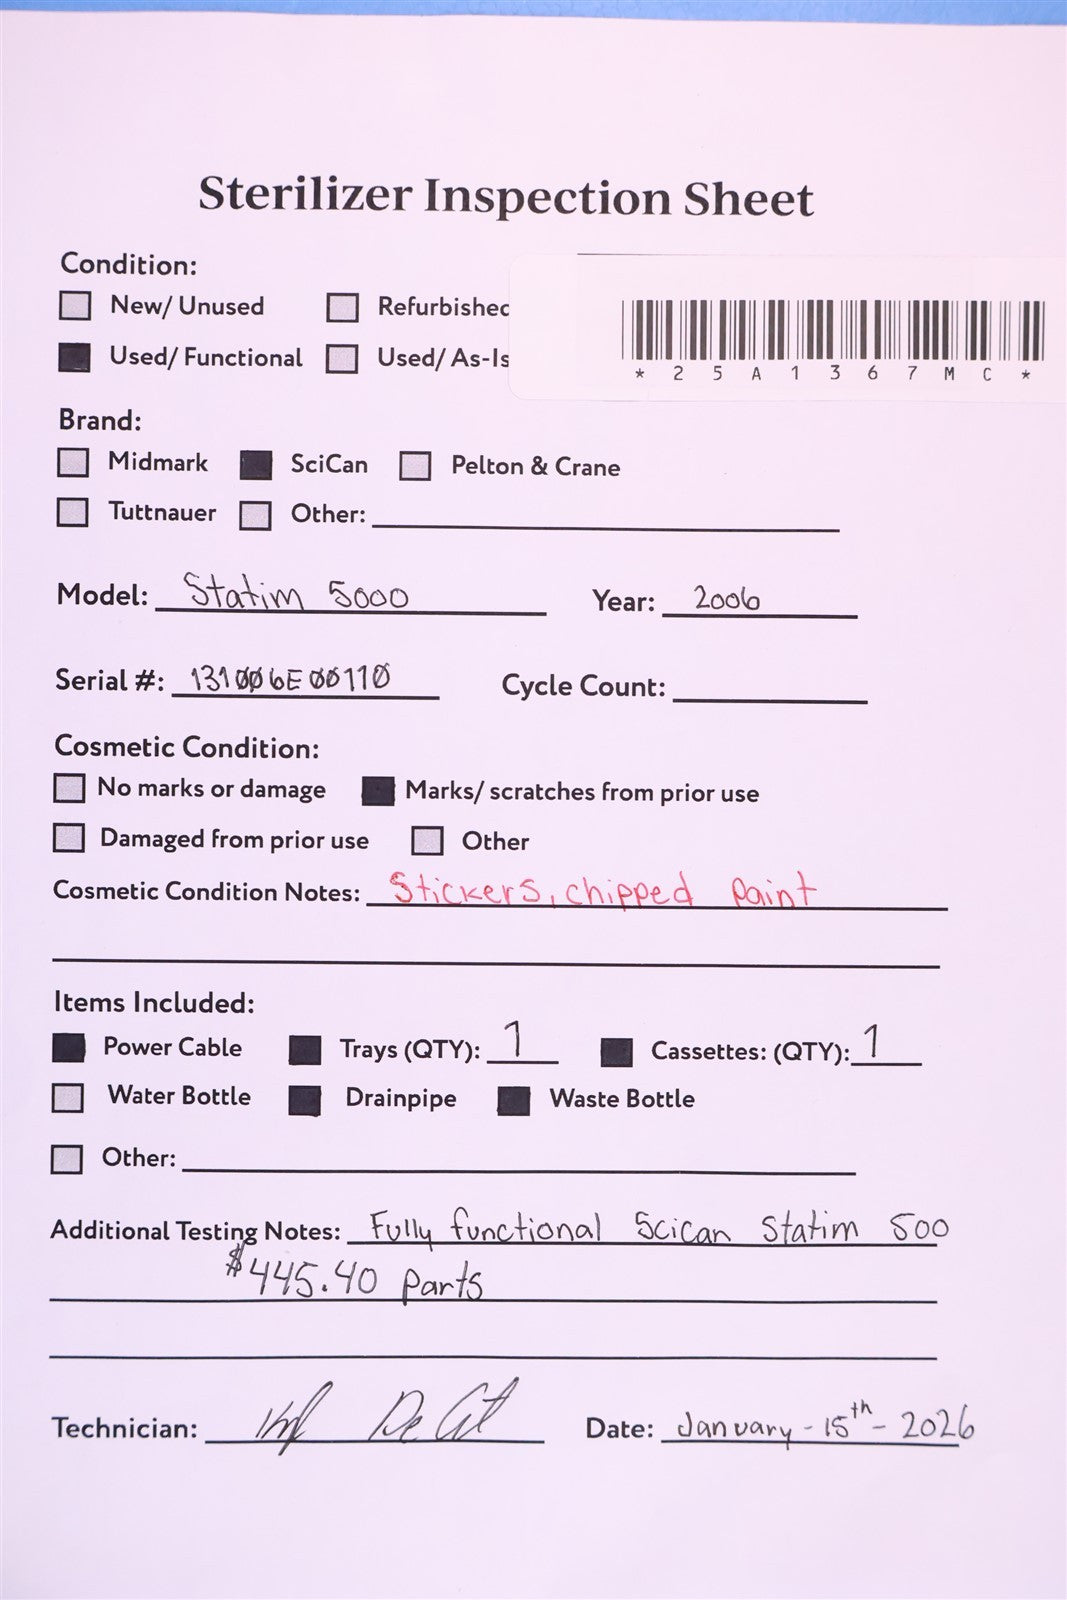 Sterilizer Inspection Sheet
Condition:
New/ Unused Refurbished
Used/ Functional Used/ As-Is
* 2 5 A 1 3 6 7 M C *
Brand:
Midmark SciCan Pelton & Crane
Tuttnauer Other:
Model: Statim 5000 Year: 2006
Serial #: 131006E00110 Cycle Count:
Cosmetic Condition:
No marks or damage Marks/ scratches from prior use
Damaged from prior use Other
Cosmetic Condition Notes: Stickers, chipped paint
Items Included:
Power Cable Trays (QTY): 1 Cassettes: (QTY): 1
Water Bottle Drainpipe Waste Bottle
Other:
Additional Testing Notes: Fully functional Scican Statim 500
$445.40 parts
Technician:
Date: January - 15th - 2026